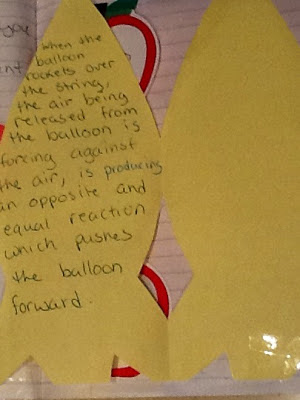 when the
balloon
rockets over
the string,
the air being
released from
the balloon is
forcing against
the air, is producing
an opposite and
equal reaction
which pushes
the balloon
forward.